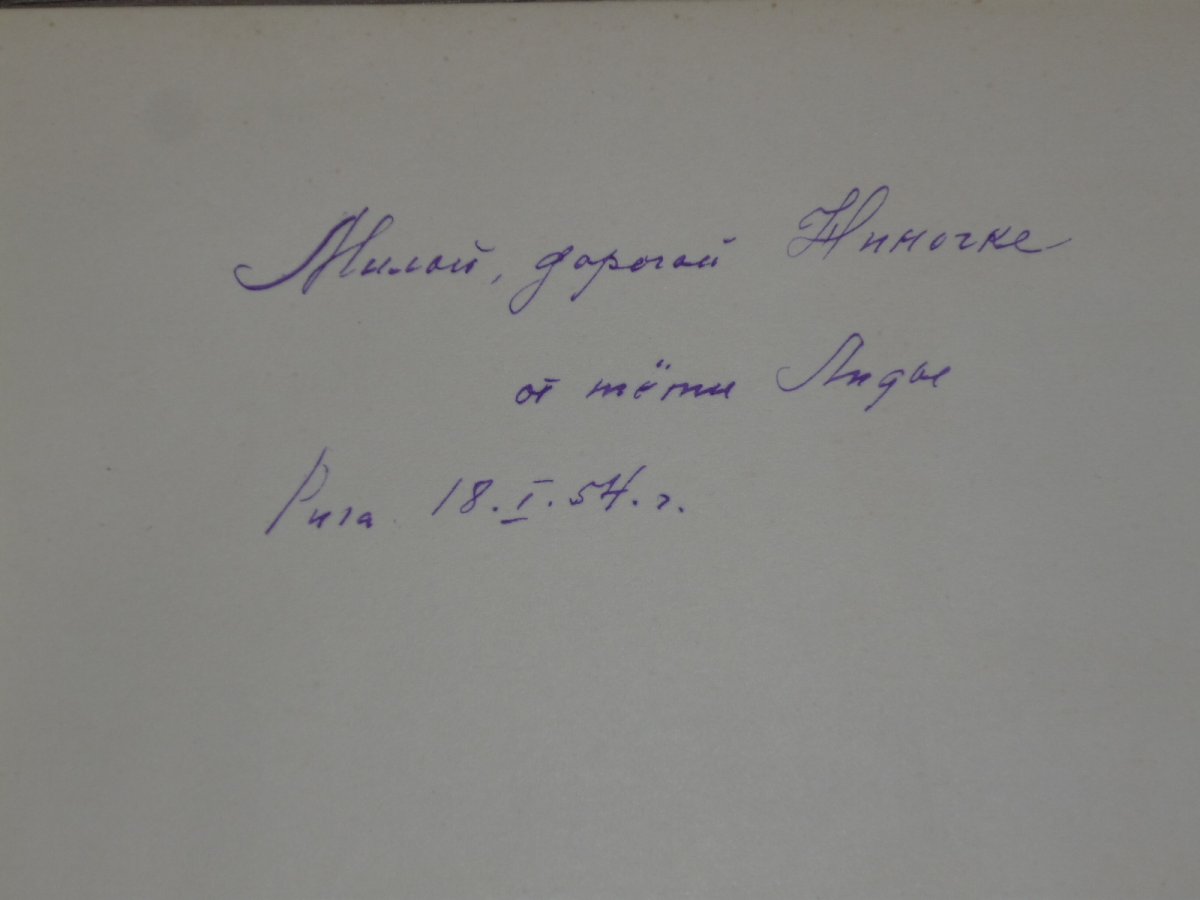 Милой, дорогой Ниночке
от тёти Лиды
Рига 18.I.54.г.